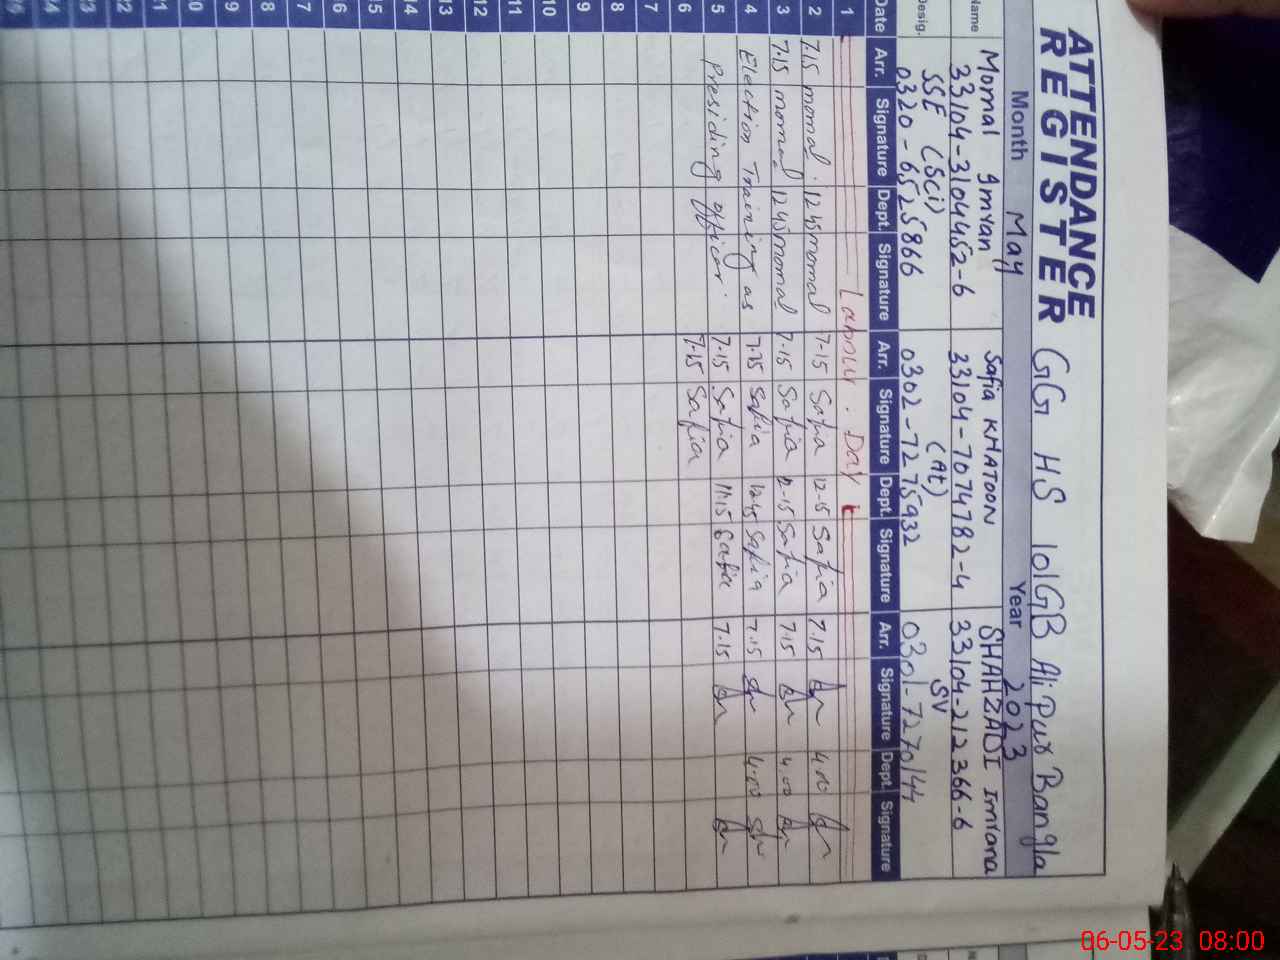 ATTENDANCE
REGISTER
GG HS 101GB Ali Pur Bangla
Month May Year 2023
Name Momal Imran Safia KHATOON SHAHZADI Imrana
33104-3104452-6 33104-7074782-4 33104-212366-6
Desig. SSE (Sci) (At) SV
0320-6525866 0302-7275932 0301-7270144
Date Arr. Signature Dept. Signature Arr. Signature Dept. Signature Arr. Signature Dept. Signature
1 Labour Day
2 7.15 momal 12.45 momal 7-15 Safia 12-15 Safia 7.15 4.00
3 7.15 momal 12.45 momal 7.15 Safia 12-15 Safia 7.15 4.00
4 Election Training as 7.15 Safia 12.45 Safia 7.15 4.00
5 Presiding officer. 7.15 Safia 11.15 Safia 7.15
6 7.15 Safia
7
8
9
10
11
12
13
14
15
16
17
18
19
20
21
22
23
24
25
06-05-23 08:00